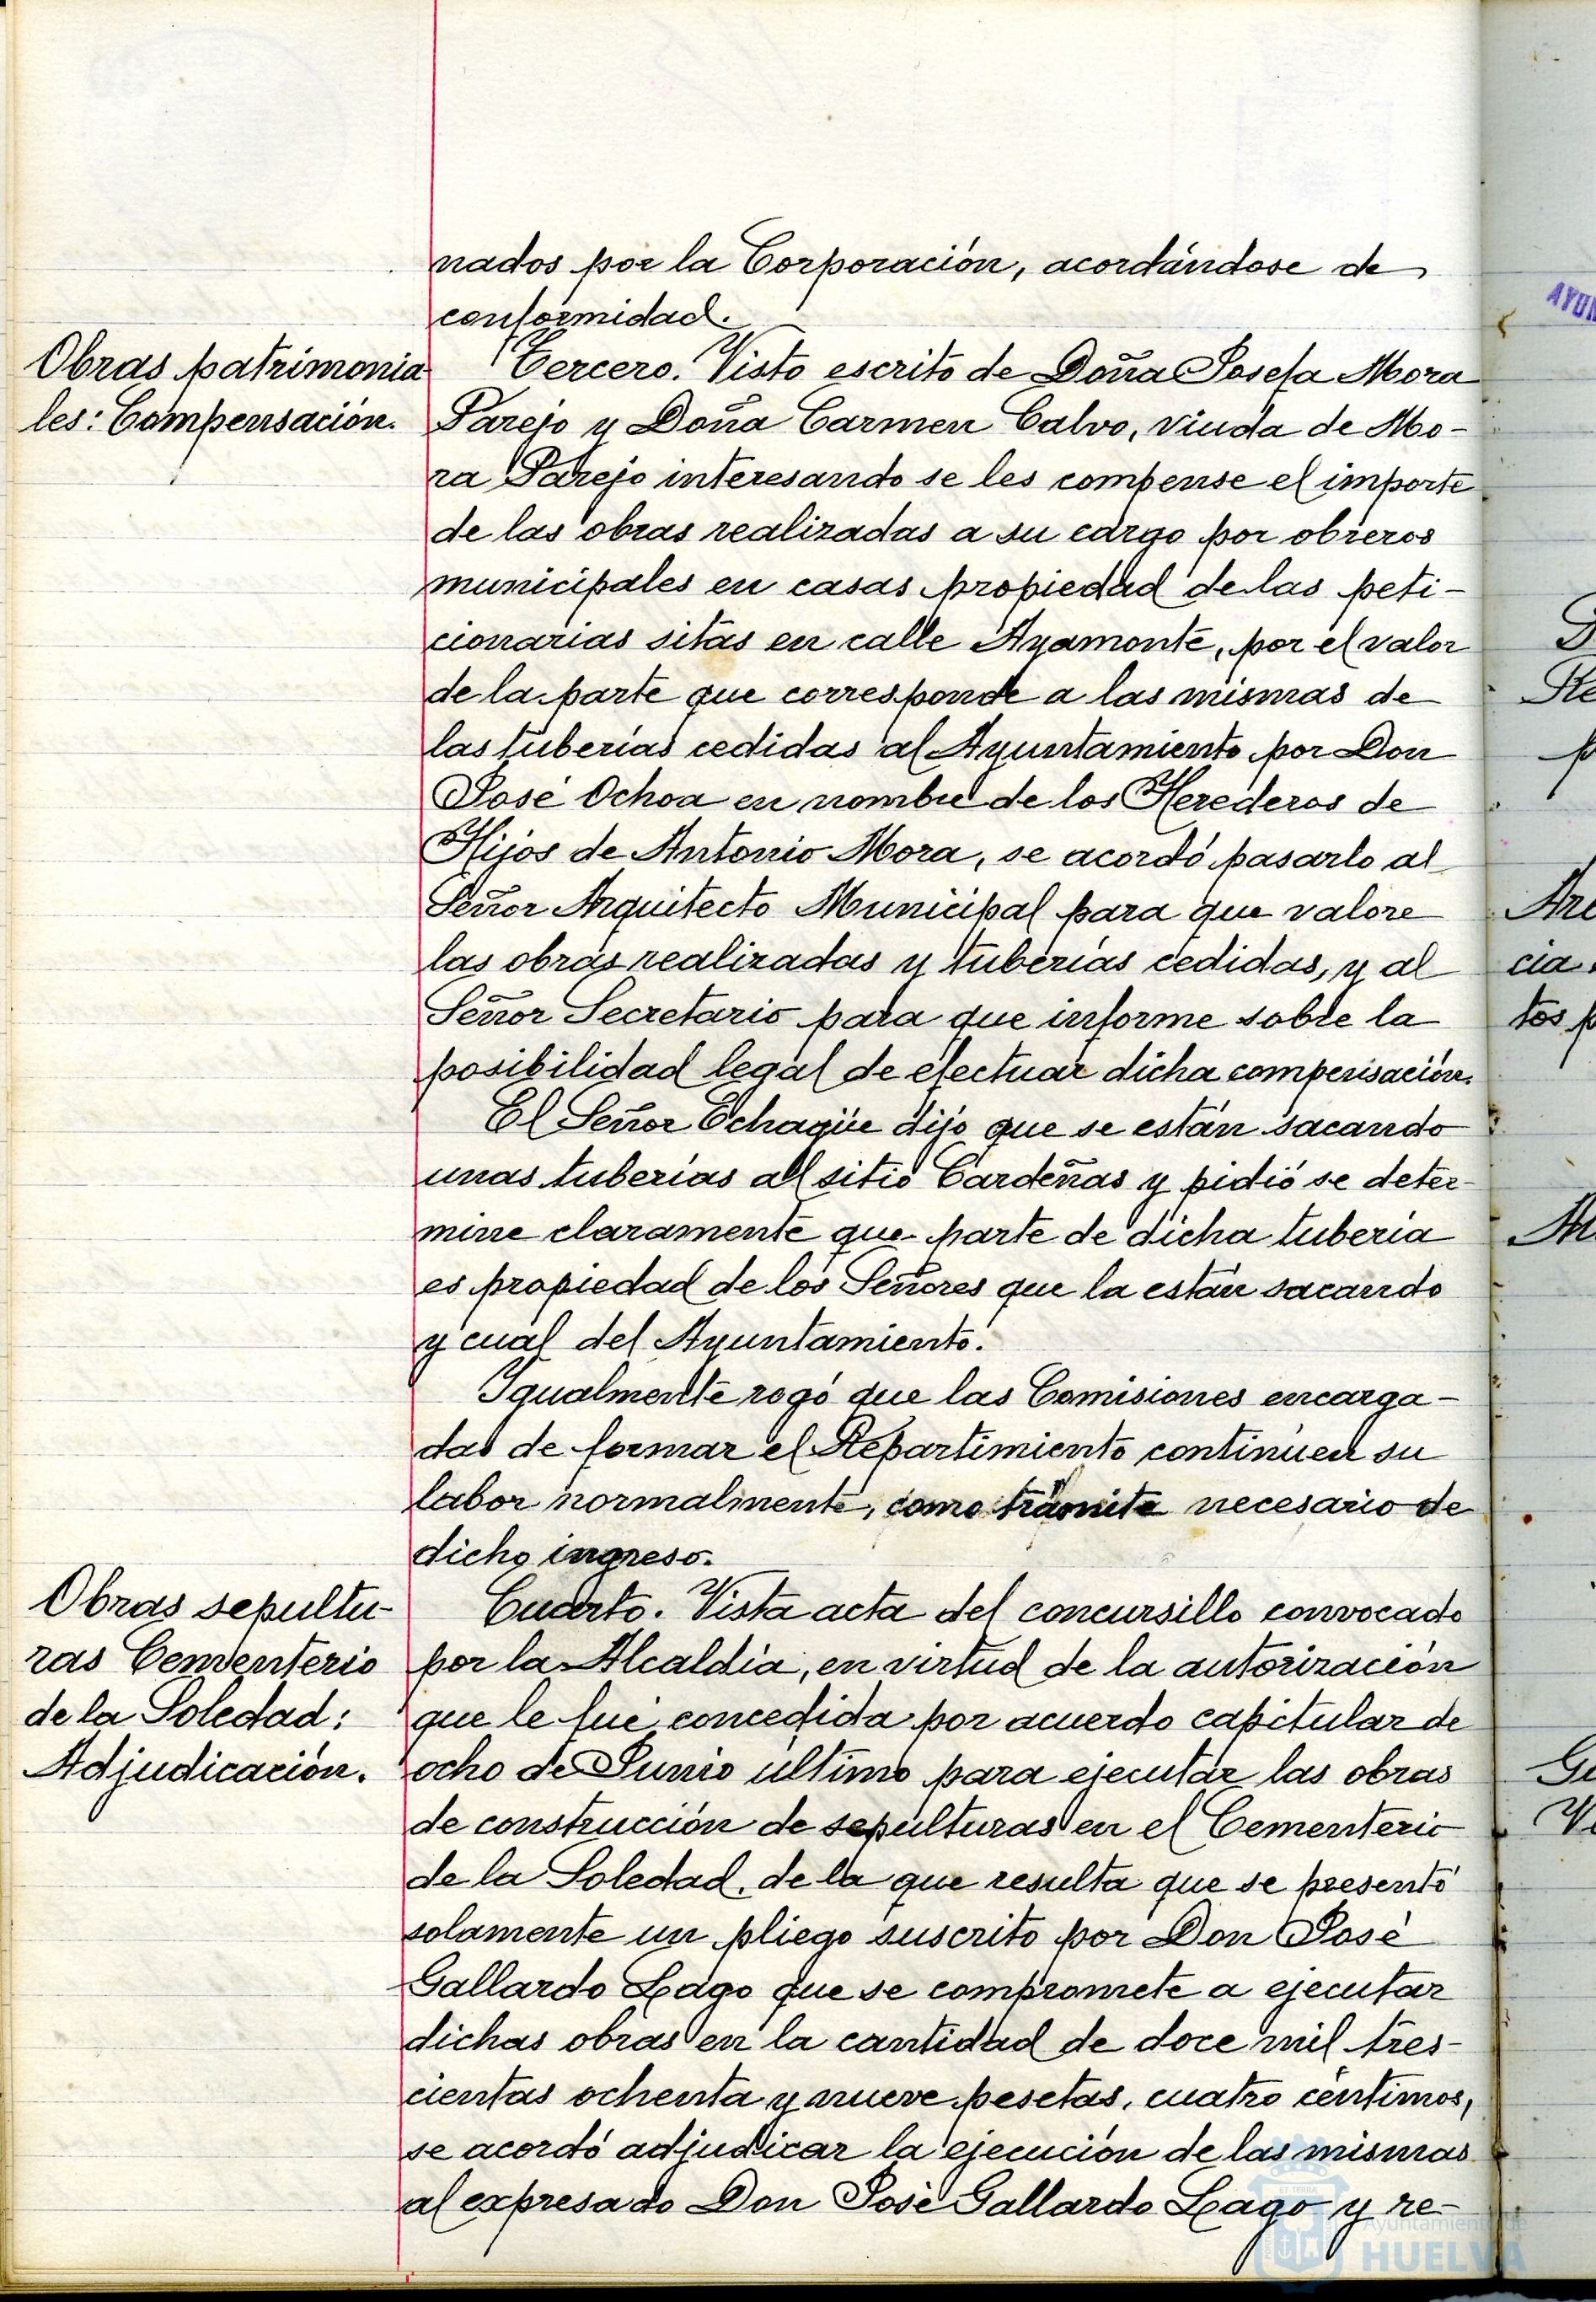 nados por la Corporación, acordándose de
conformidad.
Obras patrimonia
les: Compensación.
Tercero. Visto escrito de Doña Josefa Mora
Parejo y Doña Carmen Calvo, viuda de Mo-
ra Parejo interesando se les compense el importe
de las obras realizadas a su cargo por obreros
municipales en casas propiedad de las peti-
cionarias sitas en calle Ayamonte, por el valor
de la parte que corresponde a las mismas de
las tuberías cedidas al Ayuntamiento por Don
José Ochoa en nombre de los Herederos de
Hijos de Antonio Mora, se acordó pasarlo al
Señor Arquitecto Municipal para que valore
las obras realizadas y tuberías cedidas, y al
Señor Secretario para que informe sobre la
posibilidad legal de efectuar dicha compensación.
El Señor Echagüe dijo que se están sacando
unas tuberías al sitio Cardeñas y pidió se deter-
mine claramente que parte de dicha tubería
es propiedad de los Señores que la están sacando
y cual del Ayuntamiento.
Igualmente rogó que las Comisiones encarga-
das de formar el Repartimiento continúen su
labor normalmente, como trámite necesario de
dicho ingreso.
Obras sepultu-
ras Cementerio
de la Soledad:
Adjudicación.
Cuarto. Vista acta del concursillo convocado
por la Alcaldía, en virtud de la autorización
que le fué concedida por acuerdo capitular de
ocho de Junio último para ejecutar las obras
de construcción de sepulturas en el Cementerio
de la Soledad, de la que resulta que se presentó
solamente un pliego suscrito por Don José
Gallardo Lago que se compromete a ejecutar
dichas obras en la cantidad de doce mil tres-
cientas ochenta y nueve pesetas, cuatro céntimos,
se acordó adjudicar la ejecución de las mismas
al expresado Don José Gallardo Lago y re-
Ayuntamiento de
HUELVA